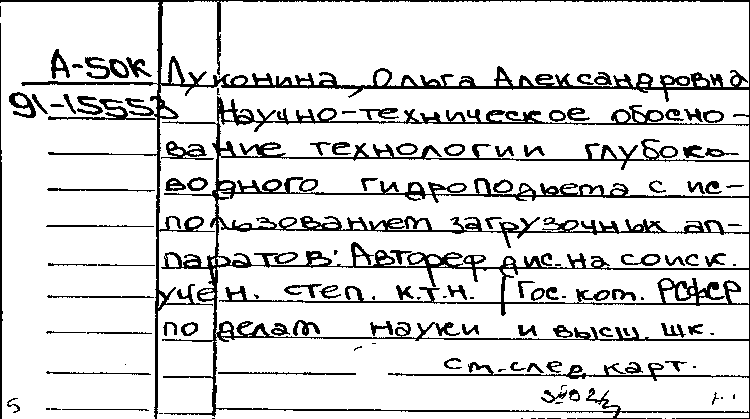 А-50К Луконина, Ольга Александровна
91-15553 Научно-техническое обосно-
вание технологии глубоко-
водного гидроподъема с ис-
пользованием загрузочных ап-
паратов: Автореф. дис. на соиск.
учен. степ. к.т.н. / Гос. ком. РСФСР
по делам науки и высш. шк.
см. след. карт.
5